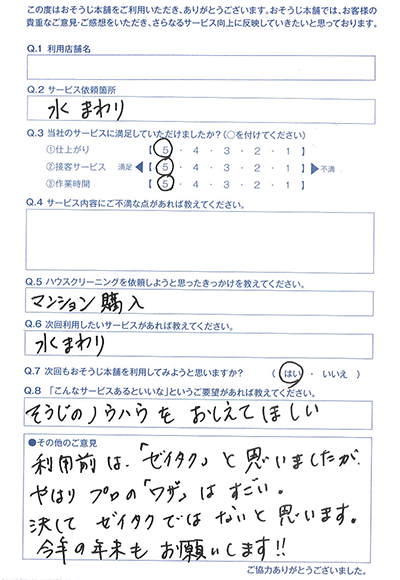 この度はおそうじ本舗をご利用いただき、ありがとうございます。おそうじ本舗では、お客様の
貴重なご意見・ご感想をいただき、さらなるサービス向上に反映していきたいと思っております。
Q.1 利用店舗名
Q.2 サービス依頼箇所
水まわり
Q.3 当社のサービスに満足していただけましたか？(○を付けてください)
①仕上がり 【 5 ・ 4 ・ 3 ・ 2 ・ 1 】
②接客サービス 満足 ◀【 5 ・ 4 ・ 3 ・ 2 ・ 1 】▶ 不満
③作業時間 【 5 ・ 4 ・ 3 ・ 2 ・ 1 】
Q.4 サービス内容にご不満な点があれば教えてください。
Q.5 ハウスクリーニングを依頼しようと思ったきっかけを教えてください。
マンション購入
Q.6 次回利用したいサービスがあれば教えてください。
水まわり
Q.7 次回もおそうじ本舗を利用してみようと思いますか？ ( はい ・ いいえ )
Q.8 「こんなサービスあるといいな」というご要望があれば教えてください。
そうじのノウハウを おしえてほしい
●その他のご意見
利用前は、「ゼイタク」と思いましたが
やはり プロの「ワザ」は すごい。
決して ゼイタクでは ないと思います。
今年の年末も お願いします!!
ご協力ありがとうございました。